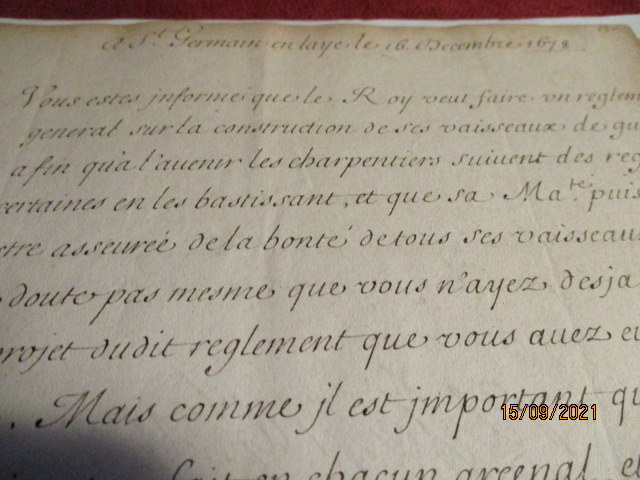 A St Germain en laye le 16 Decembre 1678
Vous estes informé que le Roy veut faire vn reglem
general sur la construction de ses vaisseaux de gu
afin qu'a l'auenir les charpentiers suiuent des reg
certaines en les bastissant, et que sa Mate. puis
stre asseureé de la bonté de tous ses vaisseau
doute pas mesme que vous n'ayez desja
projet dudit reglement que vous auez eu
. Mais comme il est jmportant qu
fait en chacun arcenal, et
15/09/2021